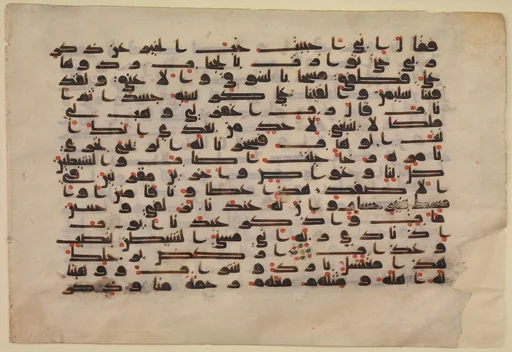 فقال اني احببت حب الخير عن ذكر
ربي حتى توارت بالحجاب ردوها
علي فطفق مسحا بالسوق والاعناق ولقد
فتنا سليمن والقينا على كرسيه جسدا ثم ا
ناب قال رب اغفر لي وهب لي
ملكا لا ينبغي لاحد من بعدي انك ا
نت الوهاب فسخرنا له الريح تجري
بامره رخا حيث اصاب والشيطين
كل بنا وغواص واخرين مقرنين في
الاصفاد هذا عطاونا فامنن او ا
مسك بغير حساب وان له عندنا لزلفى وحسن
ماب واذكر عبدنا ايوب ا
ذ نادى ربه اني مسني الشيطن بنصب
وعذاب اركض برجلك
هذا مغتسل بارد وشراب ووهبنا
له اهله ومثلهم معهم رحمة منا وذكرى